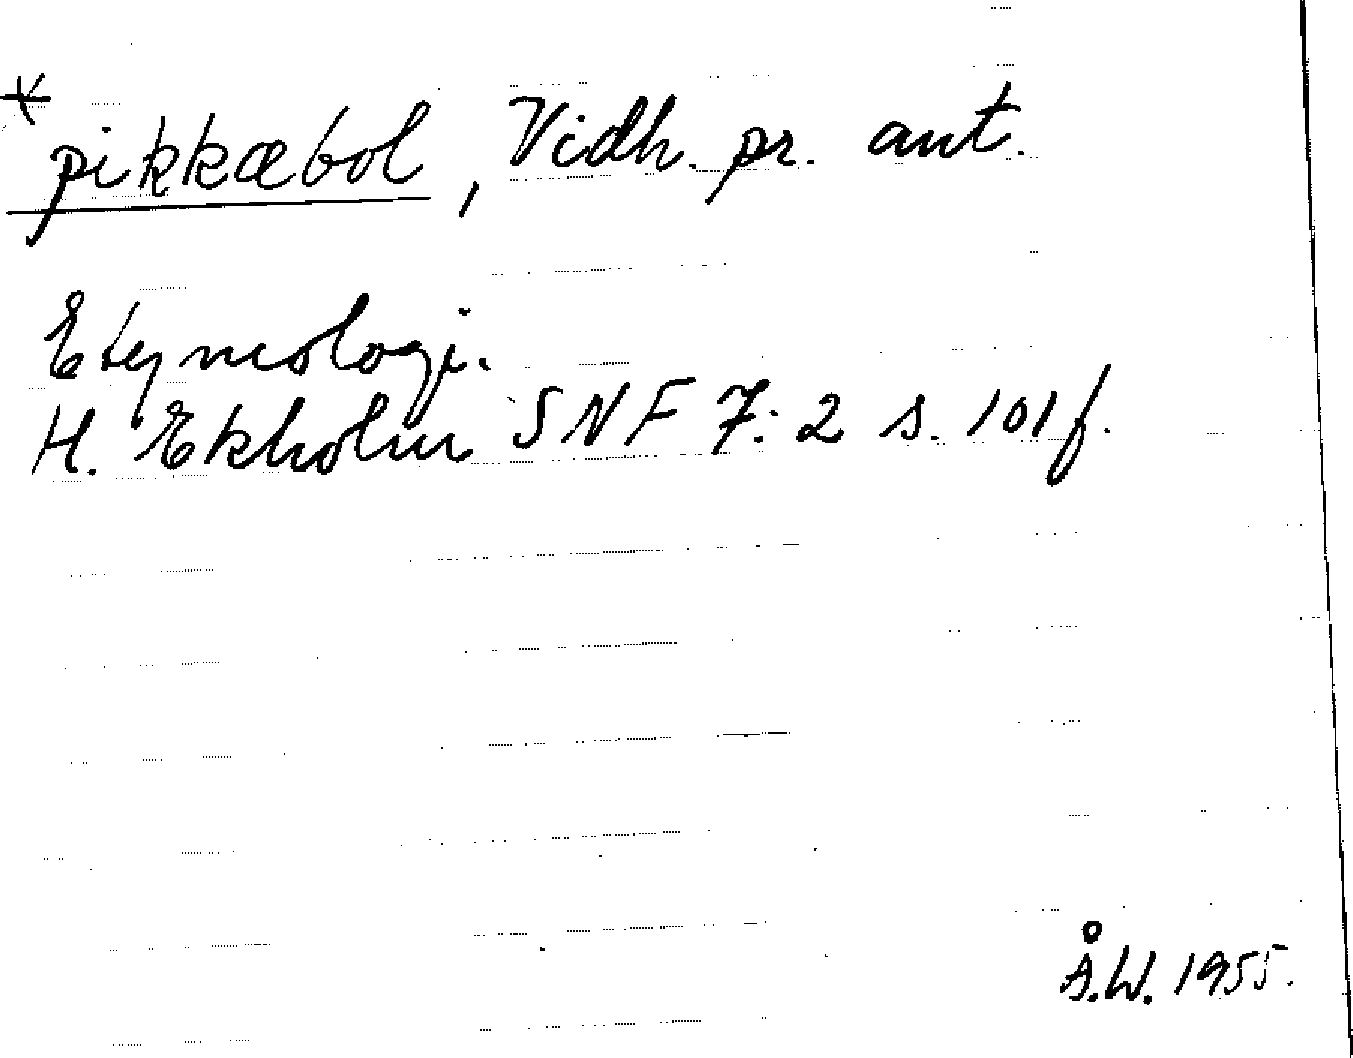 *
pikkæbol, Vidh. pr. ant.
Etymologi.
H. Ekholm SNF 7:2 s. 101f.
Å.W. 1955.